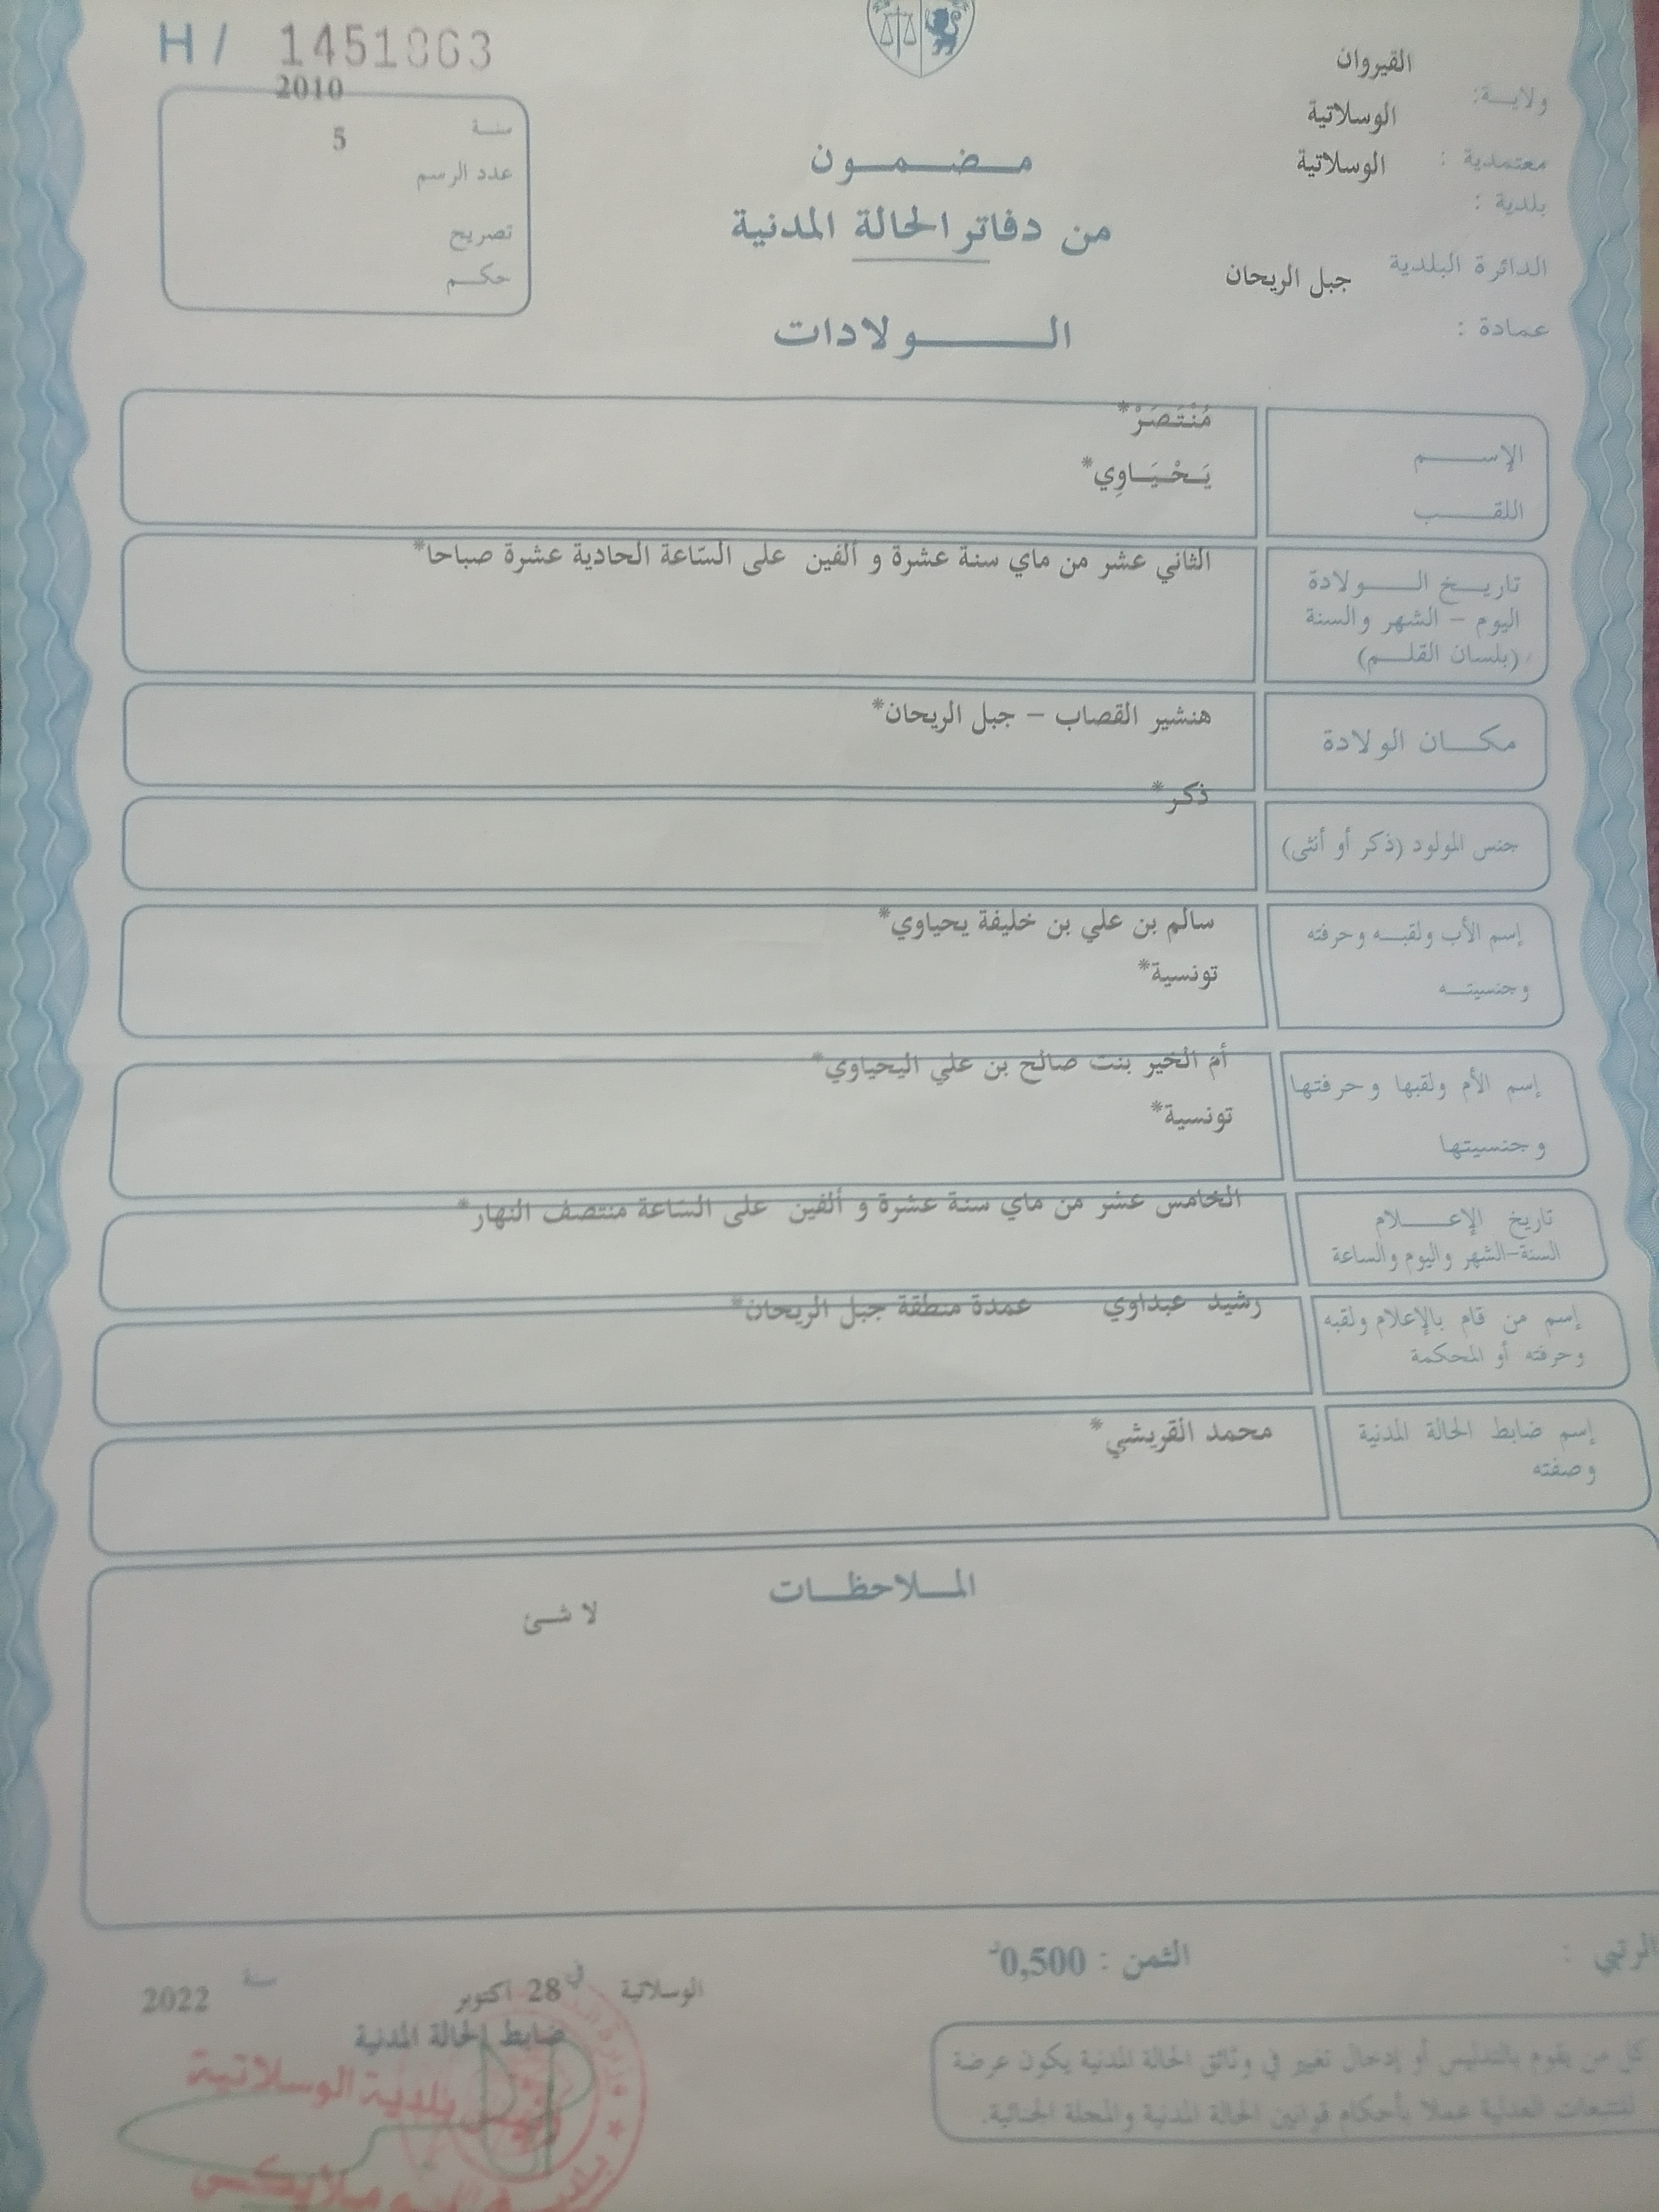 H / 1451863
2010
سنة
5
عدد الرسم
تصريح
حكم
القيروان
ولاية:
الوسلاتية
معتمدية :
الوسلاتية
بلدية :
الدائرة البلدية
جبل الريحان
عمادة :
مضمون
من دفاتر الحالة المدنية
الولادات
الإسم
مُنْتَصَرْ*
اللقب
يَحْيَاوِي*
تاريخ الولادة
اليوم – الشهر والسنة
(بلسان القلم)
الثاني عشر من ماي سنة عشرة و ألفين على السّاعة الحادية عشرة صباحا*
مكان الولادة
هنشير القصاب – جبل الريحان*
جنس المولود (ذكر أو أنثى)
ذكر*
إسم الأب ولقبه وحرفته
وجنسيته
سالم بن علي بن خليفة يحياوي*
تونسية*
إسم الأم ولقبها وحرفتها
وجنسيتها
أم الخير بنت صالح بن علي اليحياوي*
تونسية*
تاريخ الإعلام
السنة-الشهر واليوم والساعة
الخامس عشر من ماي سنة عشرة و ألفين على السّاعة منتصف النهار*
إسم من قام بالإعلام ولقبه
وحرفته أو المحكمة
رشيد عبداوي عمدة منطقة جبل الريحان*
إسم ضابط الحالة المدنية
وصفته
محمد القريشي*
الملاحظات
لا شئ
الرتبي :
الثمن : 0,500د
الوسلاتية في 28 اكتوبر سنة 2022
ضابط الحالة المدنية
رئيس بلدية الوسلاتية
كل من يقوم بالتدليس أو إدخال تغيير في وثائق الحالة المدنية يكون عرضة
للتتبعات العدلية عملا بأحكام قوانين الحالة المدنية والمجلة الجنائية.